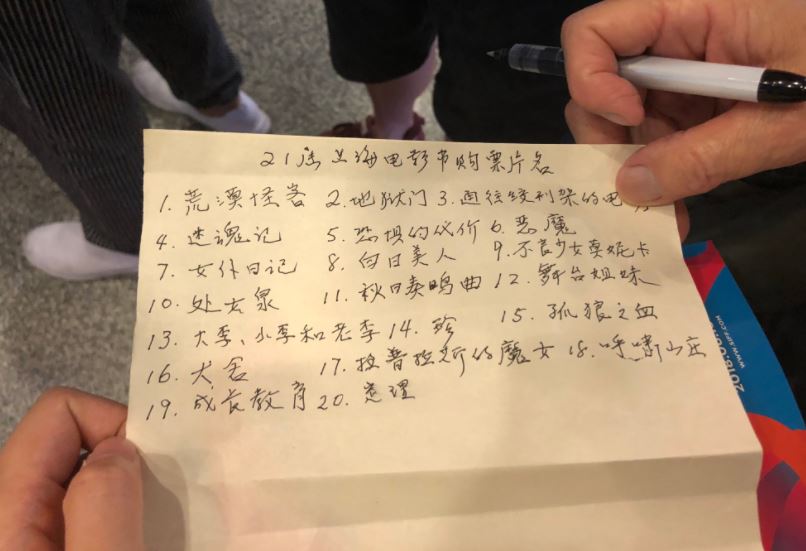 21届上海电影节购票片名
1. 荒漠怪客 2. 地狱门 3. 通往绞刑架的电
4. 迷魂记 5. 恐惧的代价 6. 恶魔
7. 女仆日记 8. 白日美人 9. 不良少女莫妮卡
10. 处女泉 11. 秋日奏鸣曲 12. 舞台姐妹
13. 大李、小李和老李 14. 15. 孤狼之血
16. 犬舍 17. 拉普拉斯的魔女 18. 呼啸山庄
19. 成长教育 20.
WWW.SIFF.COM